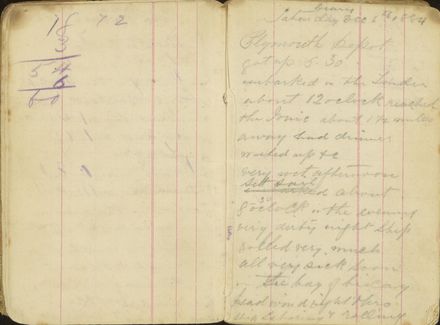 1 7 2
Saturday Dec 6th 1884
Plymouth Depot
got up 5 30
embarked in the Tender
about 12 oclock reached
the Ionic about 1½ miles
away had dinner
washed up &c
very wet afternoon
Set Sail about
oclock in the evening
very dirty night ship
rolled very much
all very sick soon
in the bay of biscay
head wind right thro
& rolling